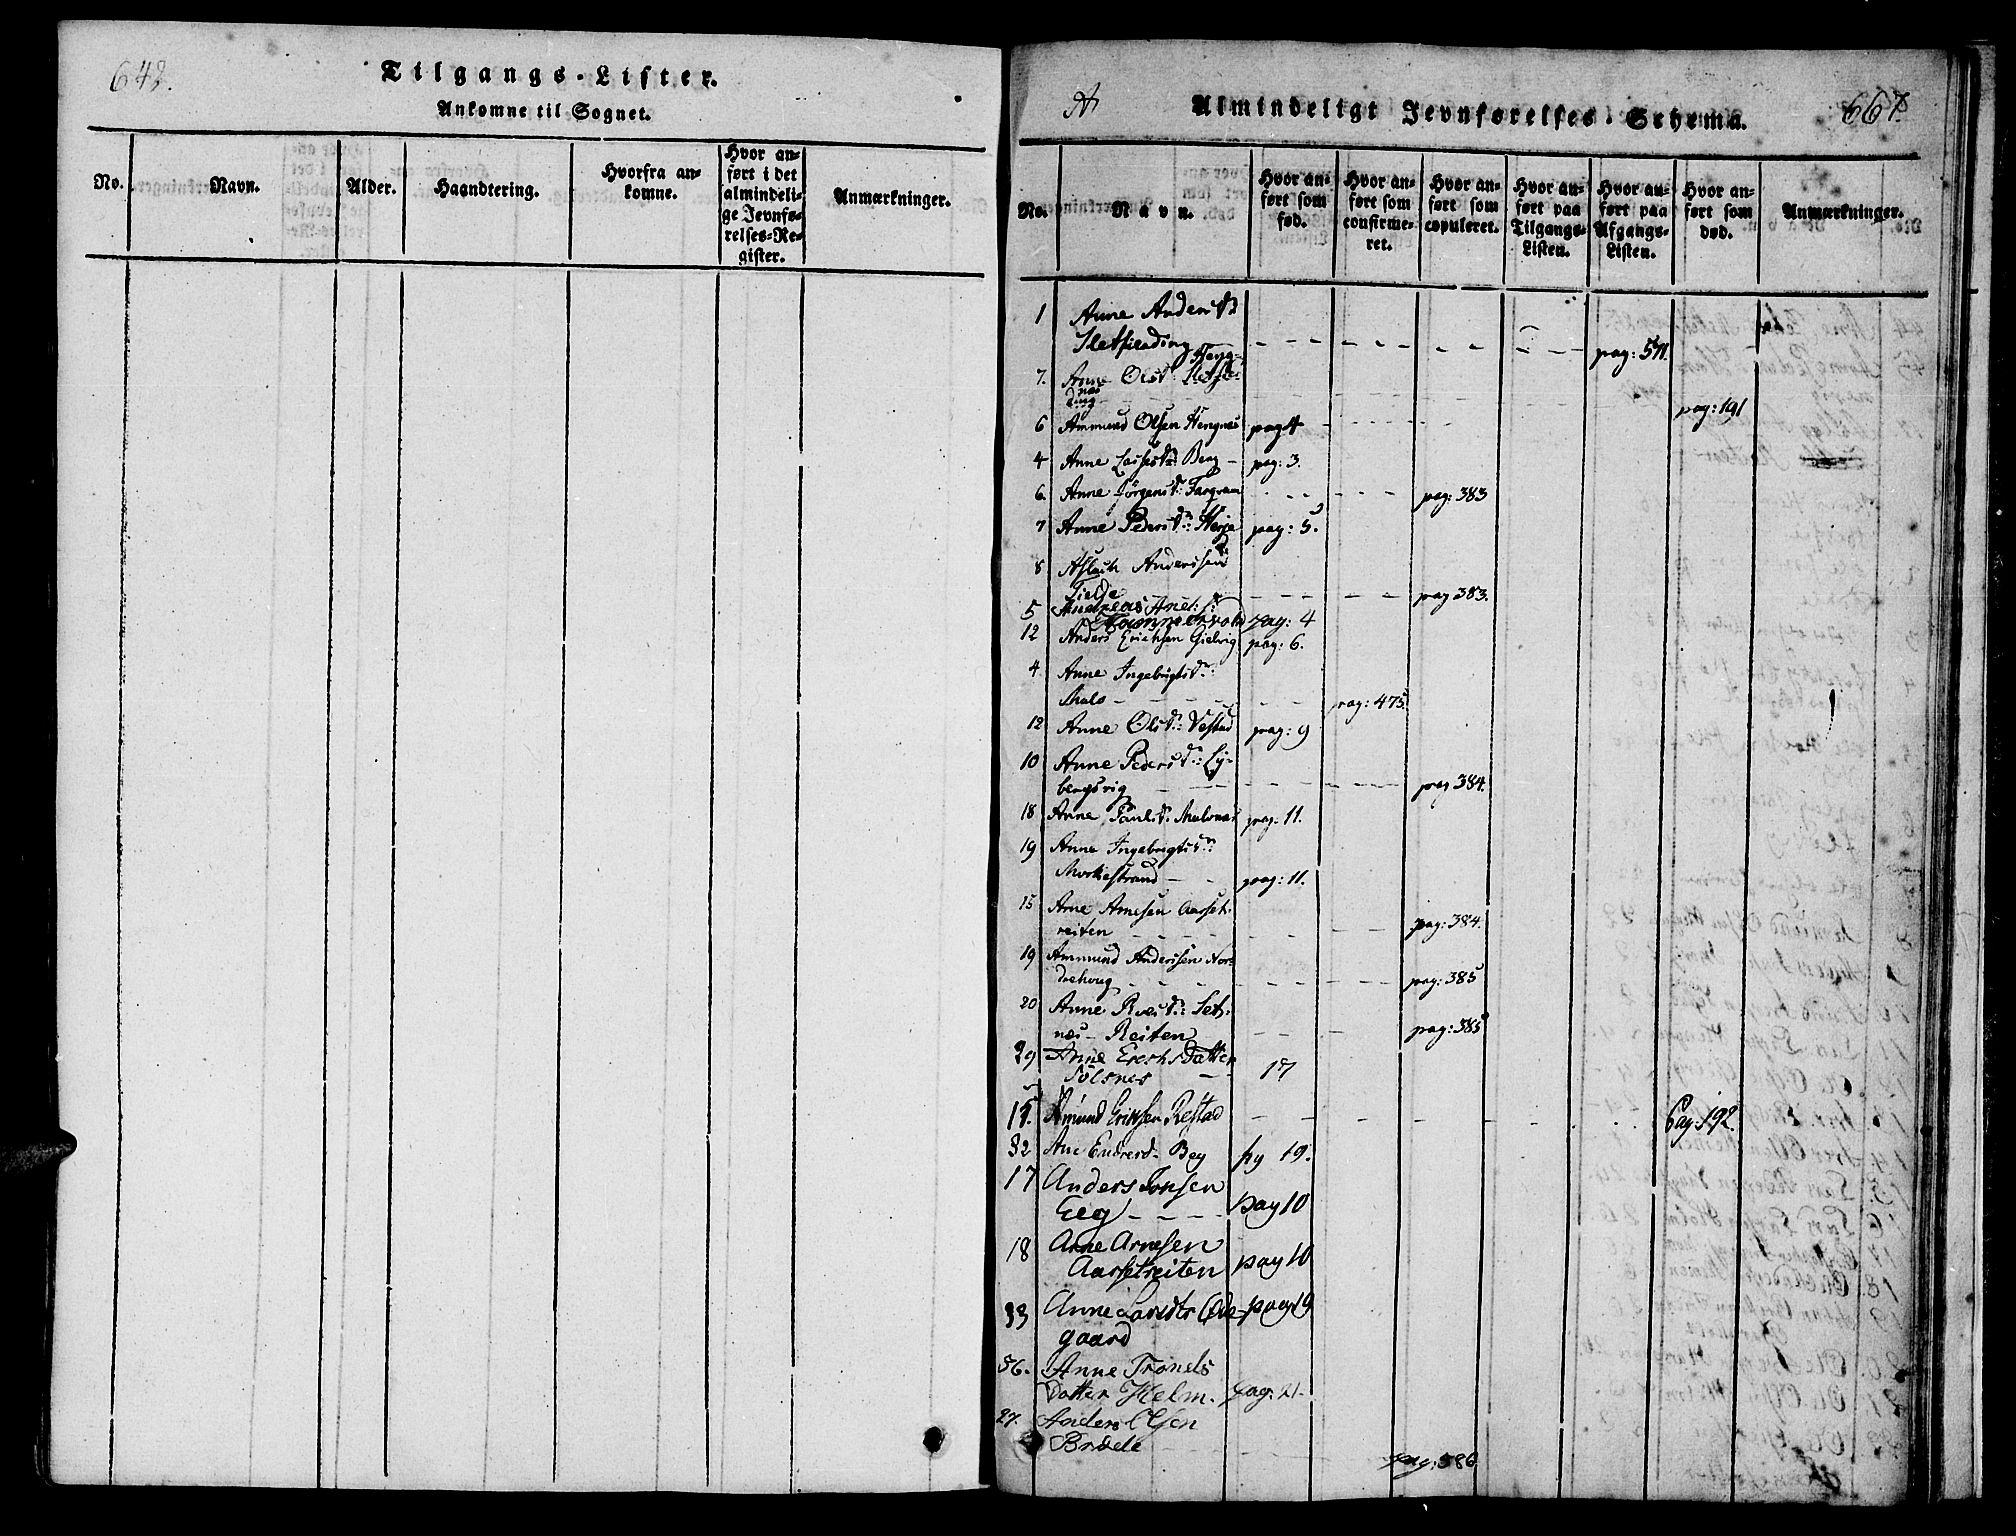 642.
Tilgangs-Lister.
Ankomne til Sognet.
No.
Navn.
Alder.
Haandtering.
Hvorfra an-
komne.
Hvor an-
ført i det
almindeli-
ge Jevnfø-
relses-Re-
gister.
Anmærkninger.
A
Almindeligt Jevnførelses-Schema.
667.
No.
Navn.
Hvor an-
ført som
fød.
Hvor an-
ført som
confirme-
ret.
Hvor an-
ført som
copuleret.
Hvor an-
ført paa
Tilgangs-
Listen.
Hvor an-
ført paa
Afgangs-
Listen.
Hvor an-
ført som
død.
Anmærkninger.
1 Anne Andersd:
pag: 571.
7. Anne Olsd:
pag: 191
6 Ammund Olsen Hengnæs pag 4
4 Anne Lassesd: Berg - pag: 3.
6. Anne Jørgensd: pag: 383
7 Anne Pedersd: Herje pag: 5.
8 Aslach Anderssen
Tielde pag 383.
5 Andreas And:
pag: 4
12 Anders Erichsen Gielvig pag: 6.
4 Anne Ingebrigtsd:
Malo - pag: 475.
12 Anne Olsd: Vestad pag: 9
10 Anne Pedersd: Ly-
bergsvig pag 384.
18 Anne Paulsd: Malonæs pag: 11.
19 Anne Ingebrigtsd:
Morkestrand - pag: 11.
15 Arne Arnesen Aarset-
reiten pag: 384.
19 Ammund Anderssen Nor-
drehoug pag: 385
20 Anne Roesd: Set-
næs - Reiten pag: 385
29 Anne Erichs Datter
Sølsnes 17
15. Amund Eriksen Restad Pag: 192.
32 Ane Endresd. Beg pg 19.
17 Anders Jonsen
Eeg pag 10
18 Arne Arnesen
Aarsetreiten pag 10
33 Anne Larsdtr Øde- pag 19
gaard
36. Anne Tronds
Datter Helm. pag: 21-
27. Anders Olsen
Brædele pag: 386